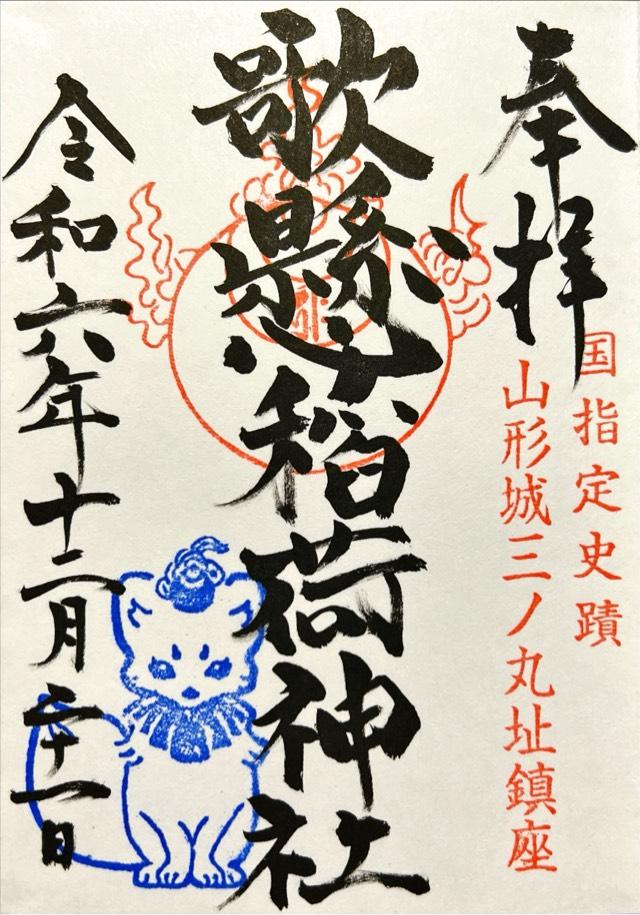 奉拝
国指定史蹟
山形城三ノ丸址鎮座
歌懸稲荷神社
令和六年十二月二十一日